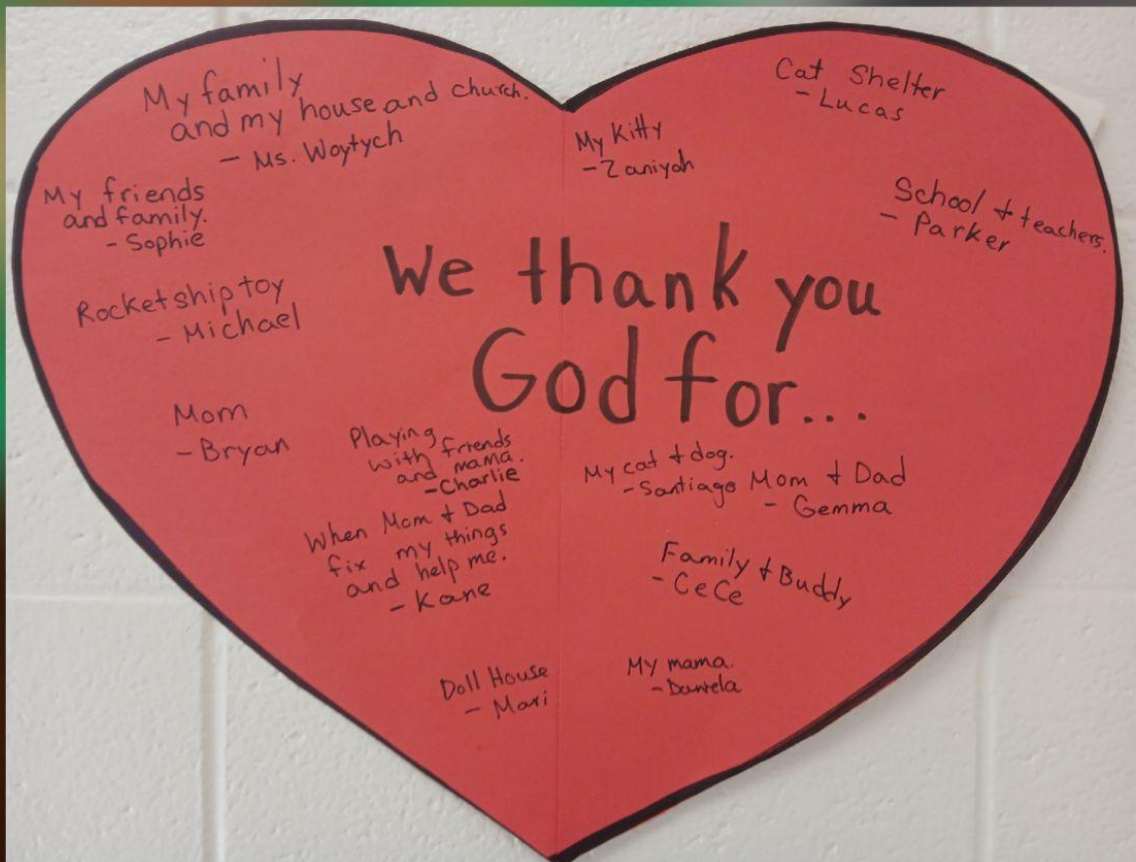 My family
and my house and church.
- Ms. Woytych
My friends
and family.
- Sophie
Rocketship toy
- Michael
Mom
- Bryan
Cat Shelter
- Lucas
My Kitty
- Zaniyah
School + teachers.
- Parker
We thank you
God for...
Playing
with friends
and mama.
- Charlie
When Mom + Dad
fix my things
and help me.
- Kane
My cat + dog.
- Santiago
Mom + Dad
- Gemma
Family + Buddy
- CeCe
Doll House
- Mari
My mama.
- Daniela